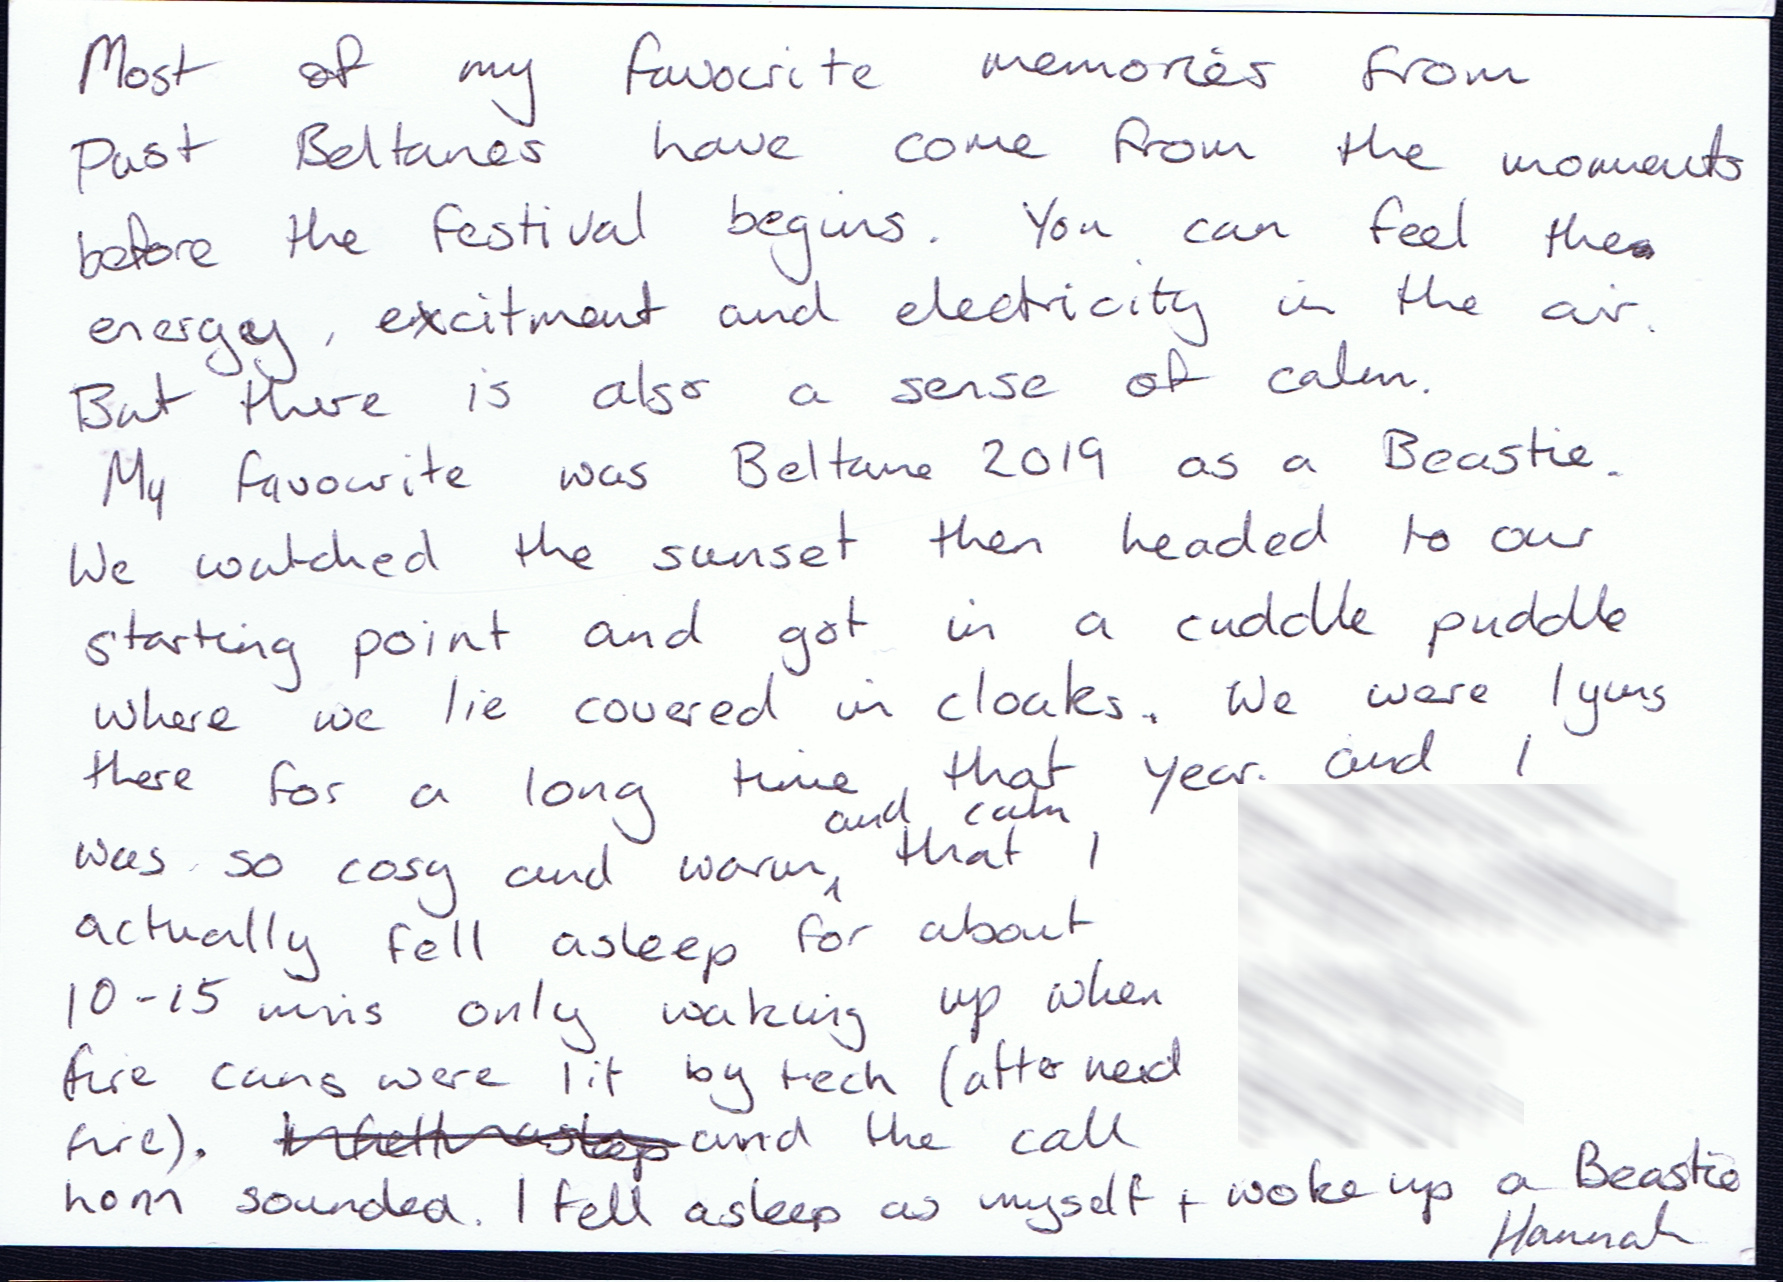 Most of my favourite memories from
Past Beltanes have come from the moments
before the festival begins. You can feel the
energy, excitment and electricity in the air.
But there is also a sense of calm.
My favourite was Beltane 2019 as a Beastie.
We watched the sunset then headed to our
starting point and got in a cuddle puddle
where we lie covered in cloaks. We were lying
there for a long time, that year. and I
and calm
was so cosy and warm, that I
actually fell asleep for about
10-15 mins only waking up when
fire cans were lit by tech (after neid
fire). I fell asleep and the call
horn sounded. I fell asleep as myself + woke up a Beastie
Hannah